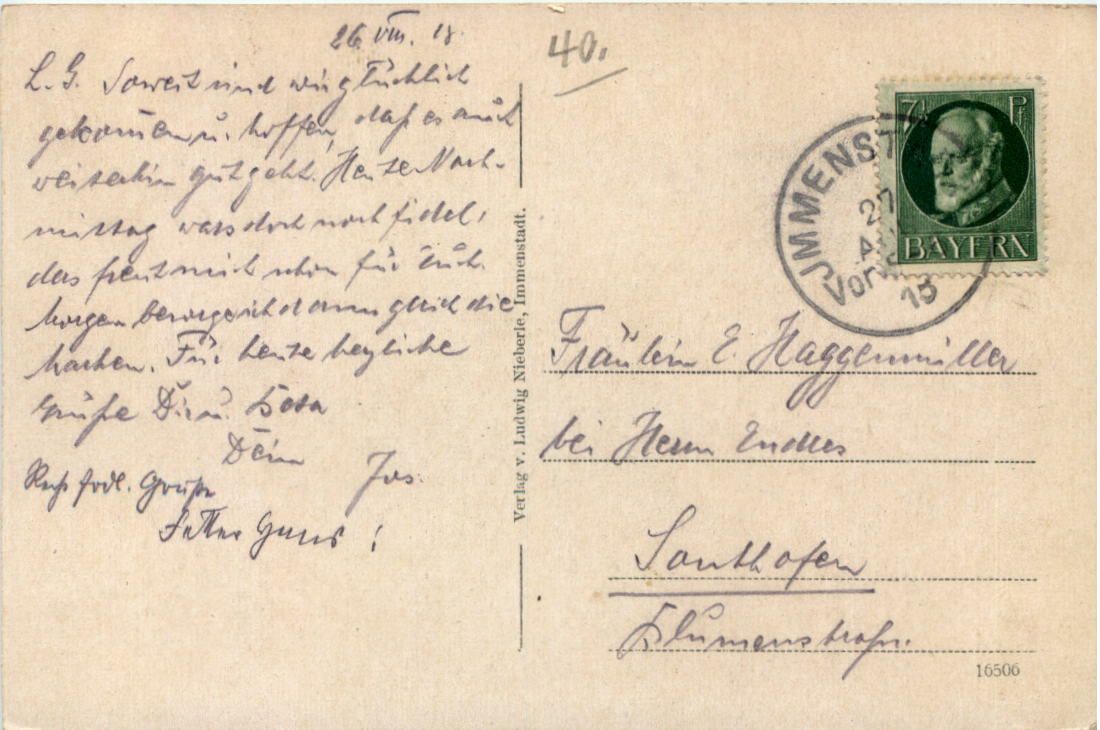 26. VIII. 18.
L. G. Soweit sind wir glücklich
gekommen u. hoffen, daß es auch
weiterhin gut geht. Heute Nach-
mittag wars doch noch fidel,
das freut mich schon für Euch.
Morgen besorge ich dann gleich die
Karten. Für heute herzliche
Grüße Dir u.
Dein
Jos.
Grüße
40.
7½ Pf
BAYERN
IMMENST
27
Vorm
Fräulein E. Haggenmüller
bei Herrn Endres
Sonthofen
Blumenstraße.
Verlag v. Ludwig Nieberle, Immenstadt.
16506